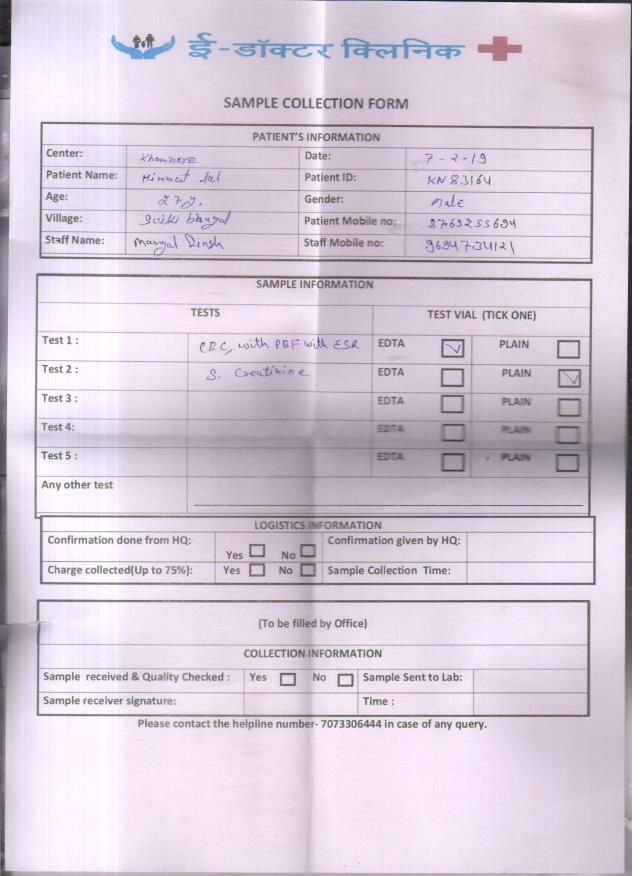 ई-डॉक्टर क्लिनिक
SAMPLE COLLECTION FORM
PATIENT'S INFORMATION
Center: Khamnore Date: 7-2-19
Patient Name: Himmat Lal Patient ID: KN 83164
Age: 27y. Gender: Male
Village: bhagal Patient Mobile no:
Staff Name: Mangal Staff Mobile no: 9694734121
SAMPLE INFORMATION
TESTS TEST VIAL (TICK ONE)
Test 1 : CBC, with PBF with ESR EDTA PLAIN
Test 2 : S. Creatinine EDTA PLAIN
Test 3 : EDTA PLAIN
Test 4: EDTA PLAIN
Test 5 : EDTA PLAIN
Any other test
LOGISTICS INFORMATION
Confirmation done from HQ: Yes No Confirmation given by HQ:
Charge collected(Up to 75%): Yes No Sample Collection Time:
(To be filled by Office)
COLLECTION INFORMATION
Sample received & Quality Checked : Yes No Sample Sent to Lab:
Sample receiver signature: Time :
Please contact the helpline number- 7073306444 in case of any query.